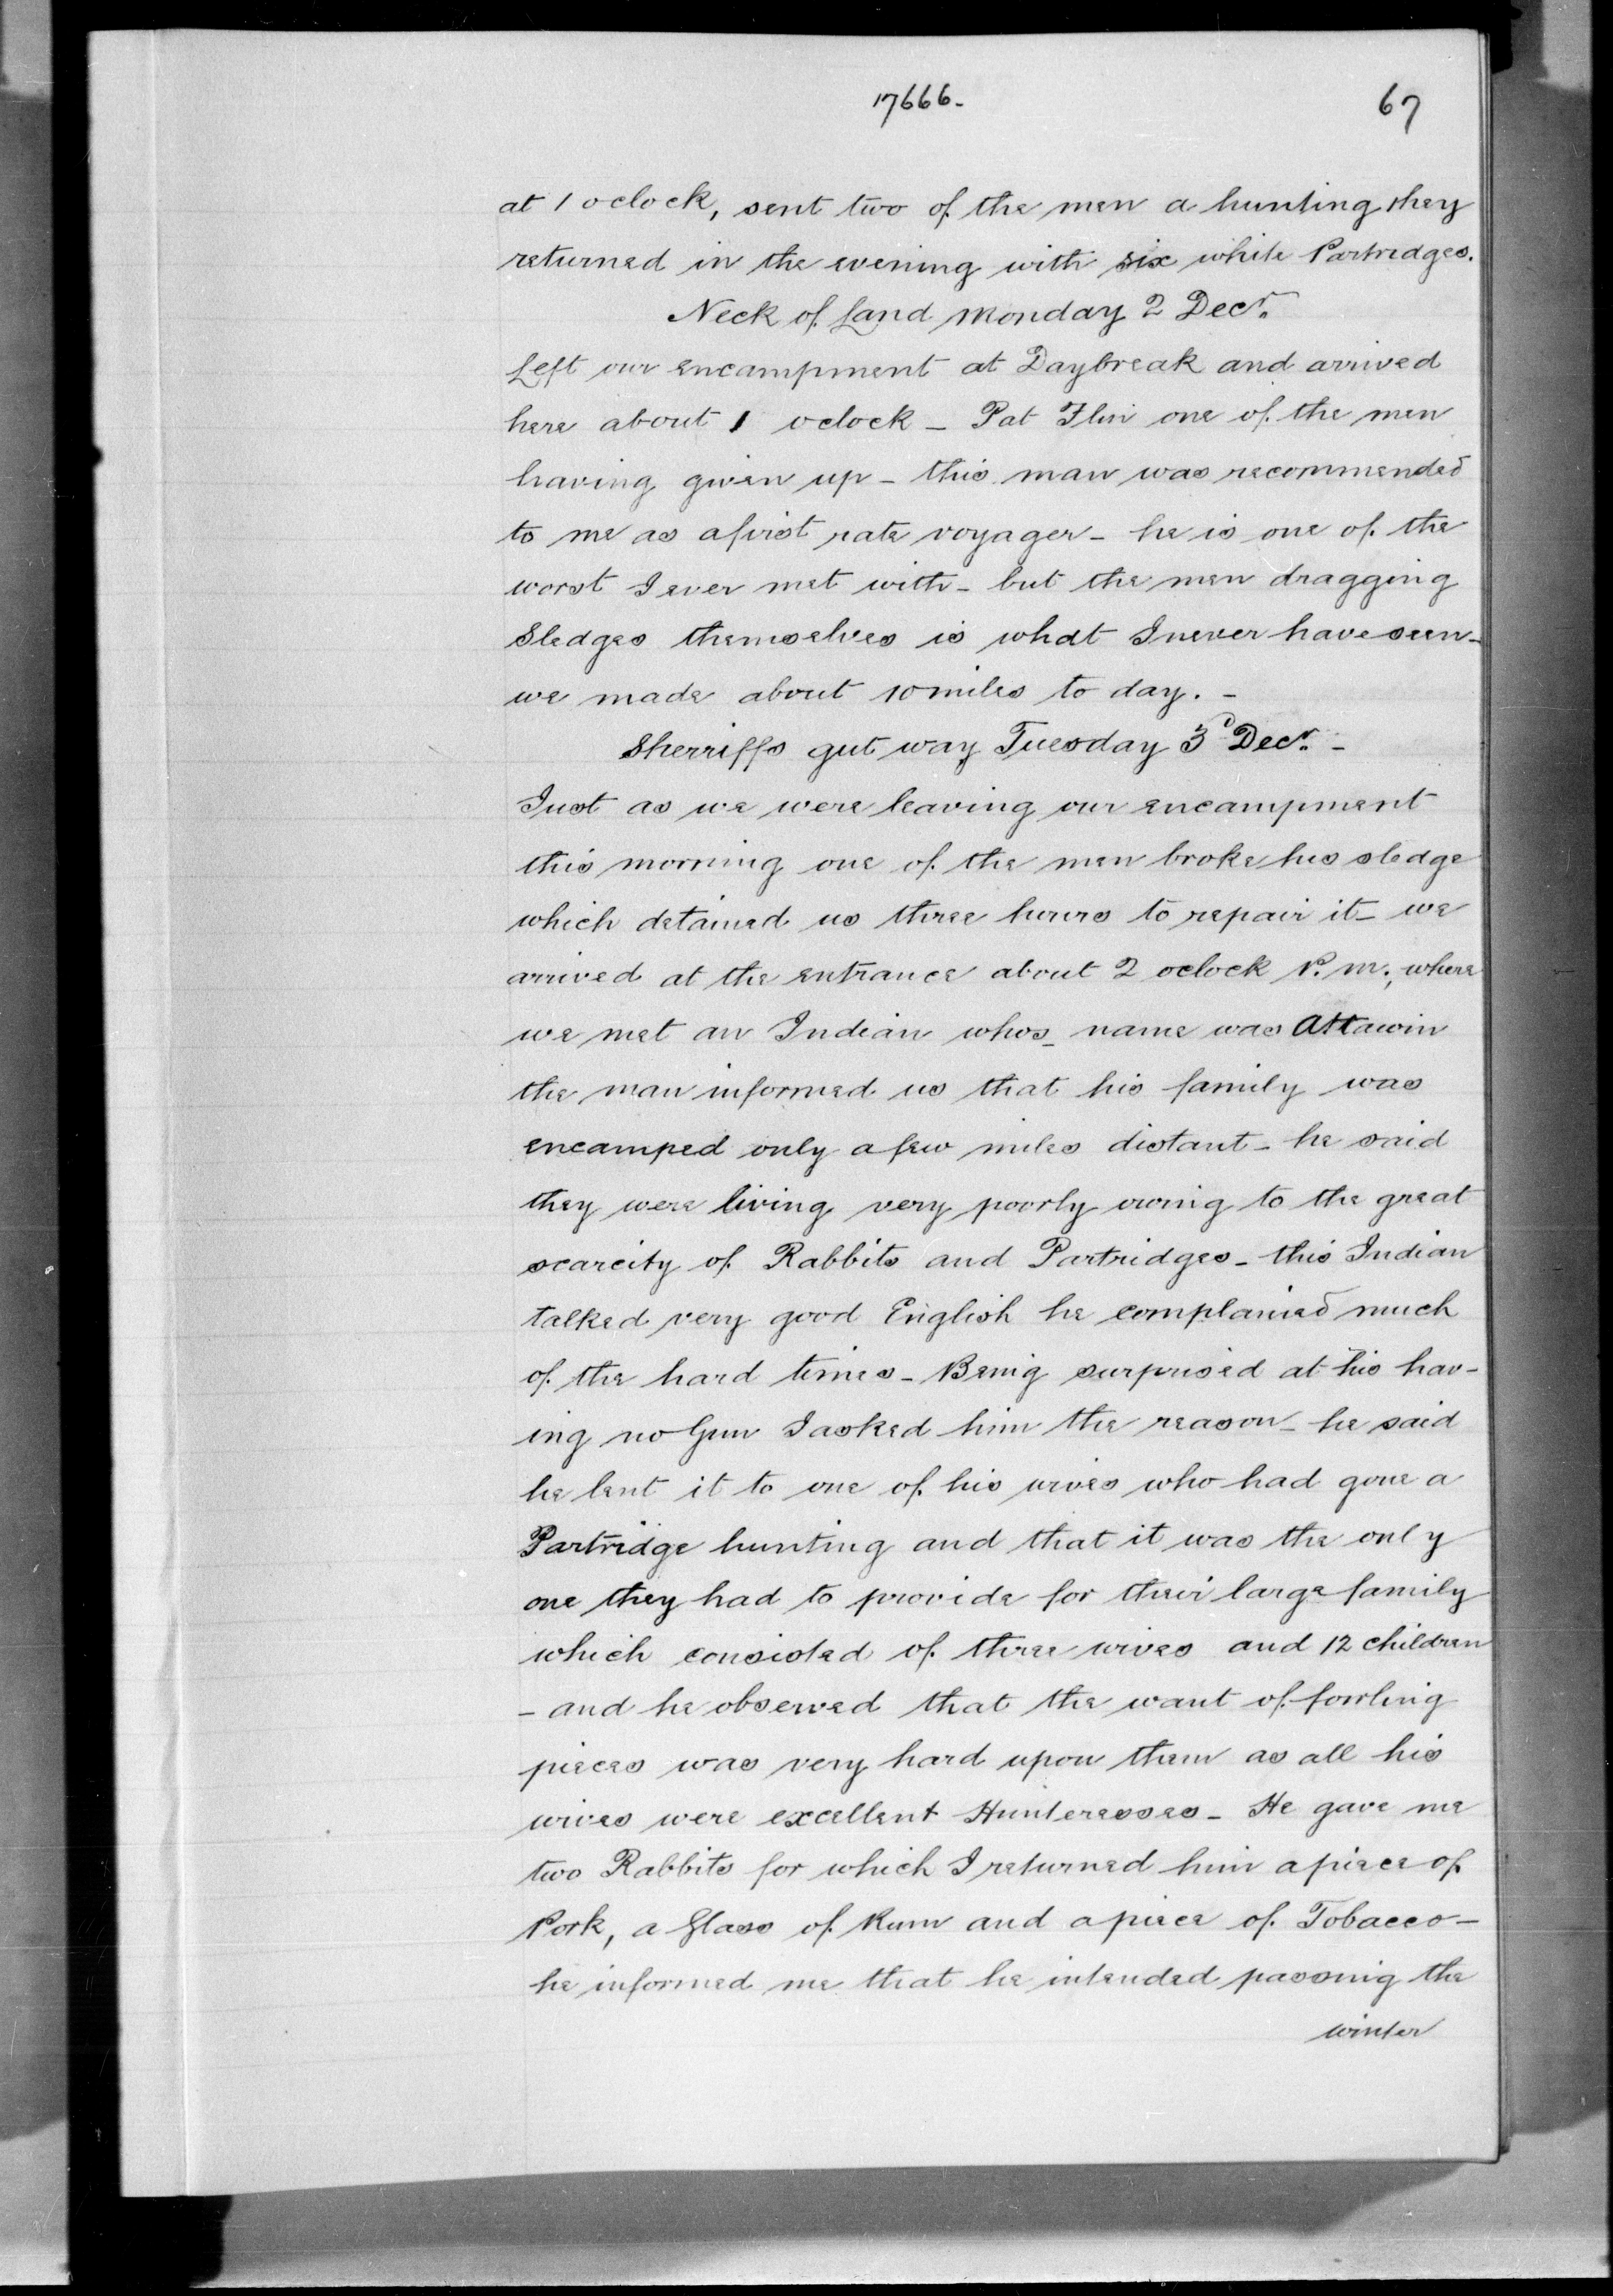 17666. 67
at 1 oclock, sent two of the men a hunting they
returned in the evening with six white Partridges.
Neck of Land Monday 2 Decr.
Left our encampment at Daybreak and arrived
here about 1 oclock - Pat Flin one of the men
having given up - this man was recommended
to me as a first rate voyager - he is one of the
worst I ever met with - but the men dragging
Sledges themselves is what I never have seen -
we made about 10 miles to day. -
Sherriffs gut way Tuesday 3d Decr. -
Just as we were leaving our encampment
this morning one of the men broke his sledge
which detained us three hours to repair it - we
arrived at the entrance about 2 oclock P.m., where
we met an Indian whos_ name was Attawin
the man informed us that his family was
encamped only a few miles distant - he said
they were living very poorly owing to the great
scarcity of Rabbits and Partridges - this Indian
talked very good English he complained much
of the hard times - Being surprised at his hav-
ing no Gun I asked him the reason - he said
he lent it to one of his wives who had gone a
Partridge hunting and that it was the only
one they had to provide for their large family
which consisted of three wives and 12 children
- and he observed that the want of fowling
pieces was very hard upon them as all his
wives were excellent Hunteresses - He gave me
two Rabbits for which I returned him a piece of
Pork, a Glass of Rum and a piece of Tobacco -
he informed me that he intended passing the
winter